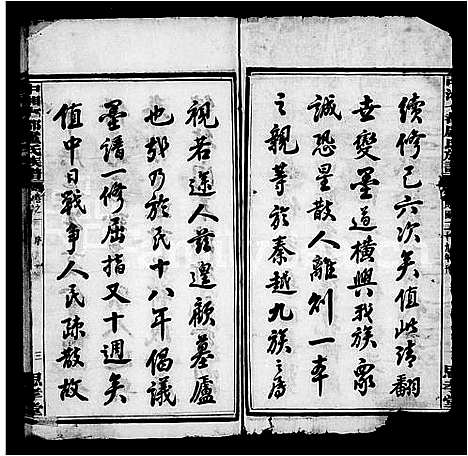 續修已六次矣值此清翻
世變墨道橫興我族眾
誠恐星散人離創一本
之親等於秦越九族之屬
視若途人茲遑顧墓廬
也郅乃於民十八年倡議
墨譜一修屈指又十週矣
值中日戰爭人民疎散故
三